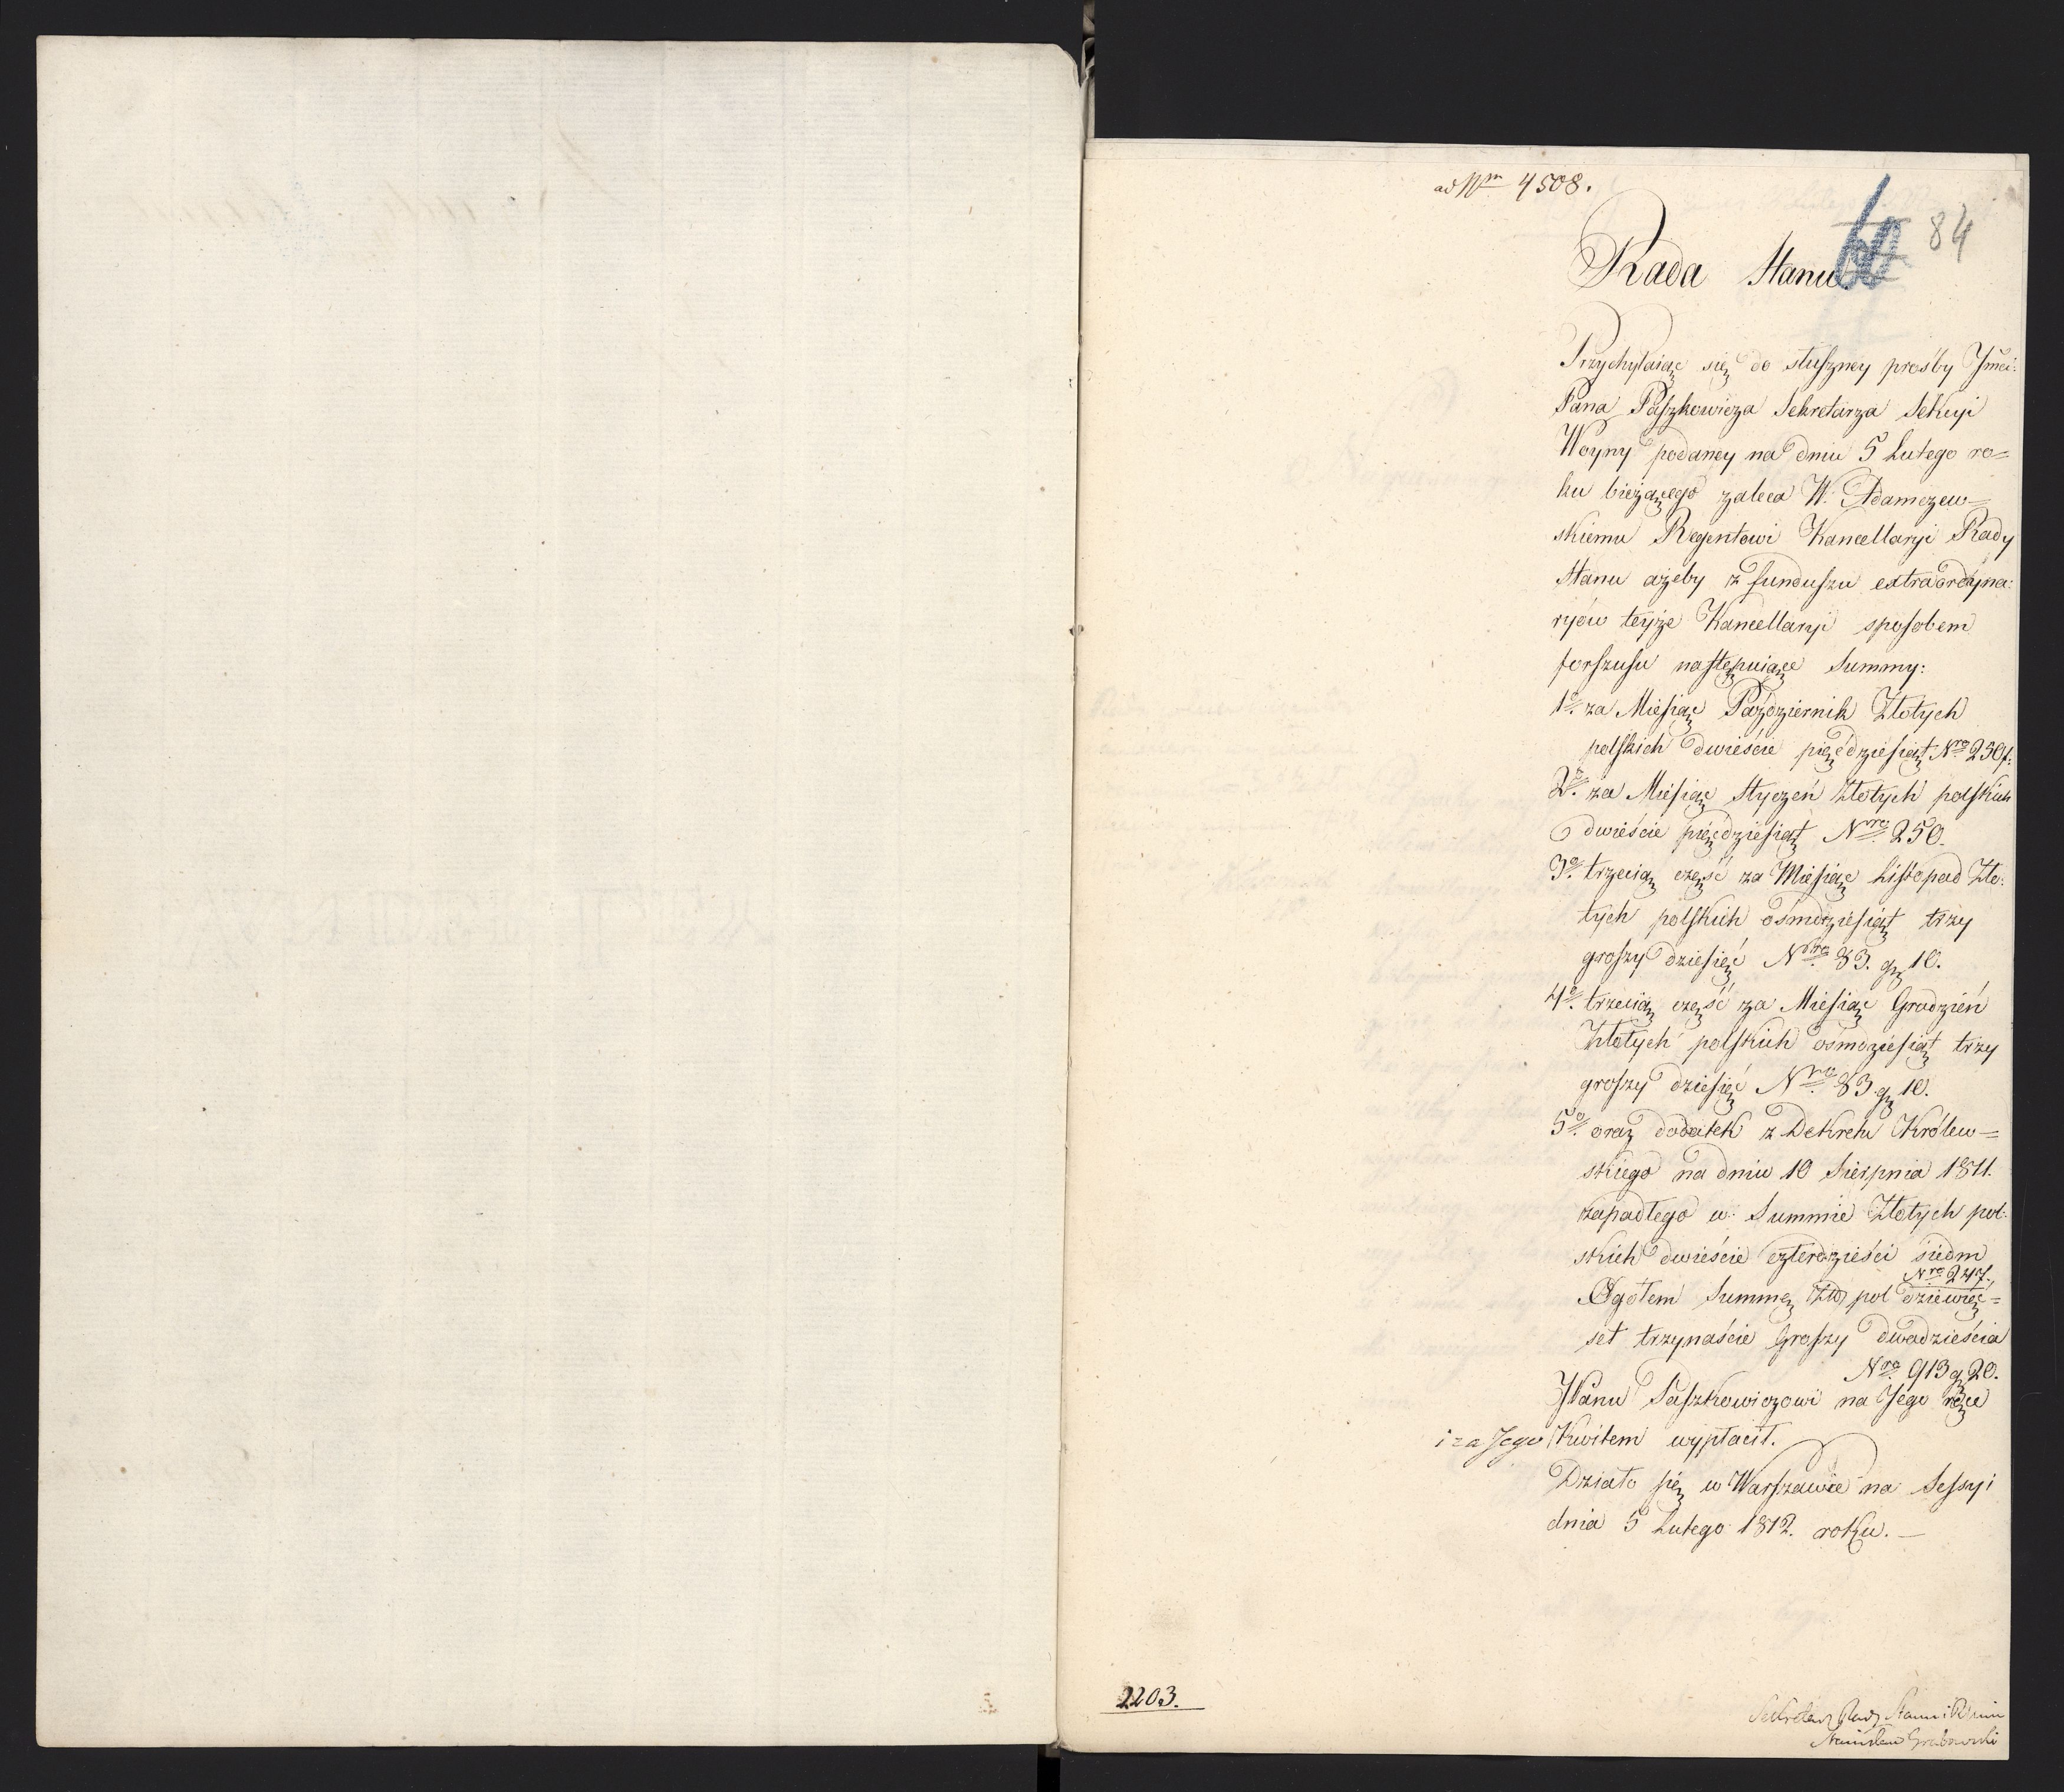 ad Nrm 4508.
84
Rada Stanu.
Przychylaiąc się do słuszney prośby Jmci:
Pana Paszkowicza Sekretarza Sekcyi
Woyny podaney na dniu 5 Lutego ro=
ku bieżącego zaleca W. Adamczew=
skiemu Regentowi Kancellaryi Rady
Stanu ażeby z funduszu extraordyna:
ryów teyże Kancellaryi sposobem
forszusu następuiące Summy:
1o. za Miesiąc Październik Złotych
polskich dwieście pięćdziesiąt Nro 250 f:
2o. za Miesiąc Styczeń Złotych polskich
dwieście pięćdziesiąt Nro. 250.
3o. trzecią część za Miesiąc Listopad Zło:
tych polskich ośmdziesiąt trzy
groszy dziesięć Nro. 83. gr 10.
4o. trzecią część za Miesiąc Grudzień
Złotych polskich ośmdziesiąt trzy
groszy dziesięć Nro. 83 gr 10.
5o. oraz dodatek z Dekretu Królew=
skiego na dniu 10 Sierpnia 1811.
zapadłego w Summie Złotych pol:
skich dwieście czterdzieści siedm
Nro 247.
Ogółem Summę Zło pol dziewięć=
set trzynaście Groszy dwadzieścia
Nro. 913 gr 20.
JPanu Paszkowiczowi na Jego ręce
i za Jego Kwitem wypłacił.
Działo się w Warszawie na Sessyi
dnia 5 Lutego 1812. roku. —
2203.
Sekretarz Rady Stanu i Minin
Stanisław Grabowski